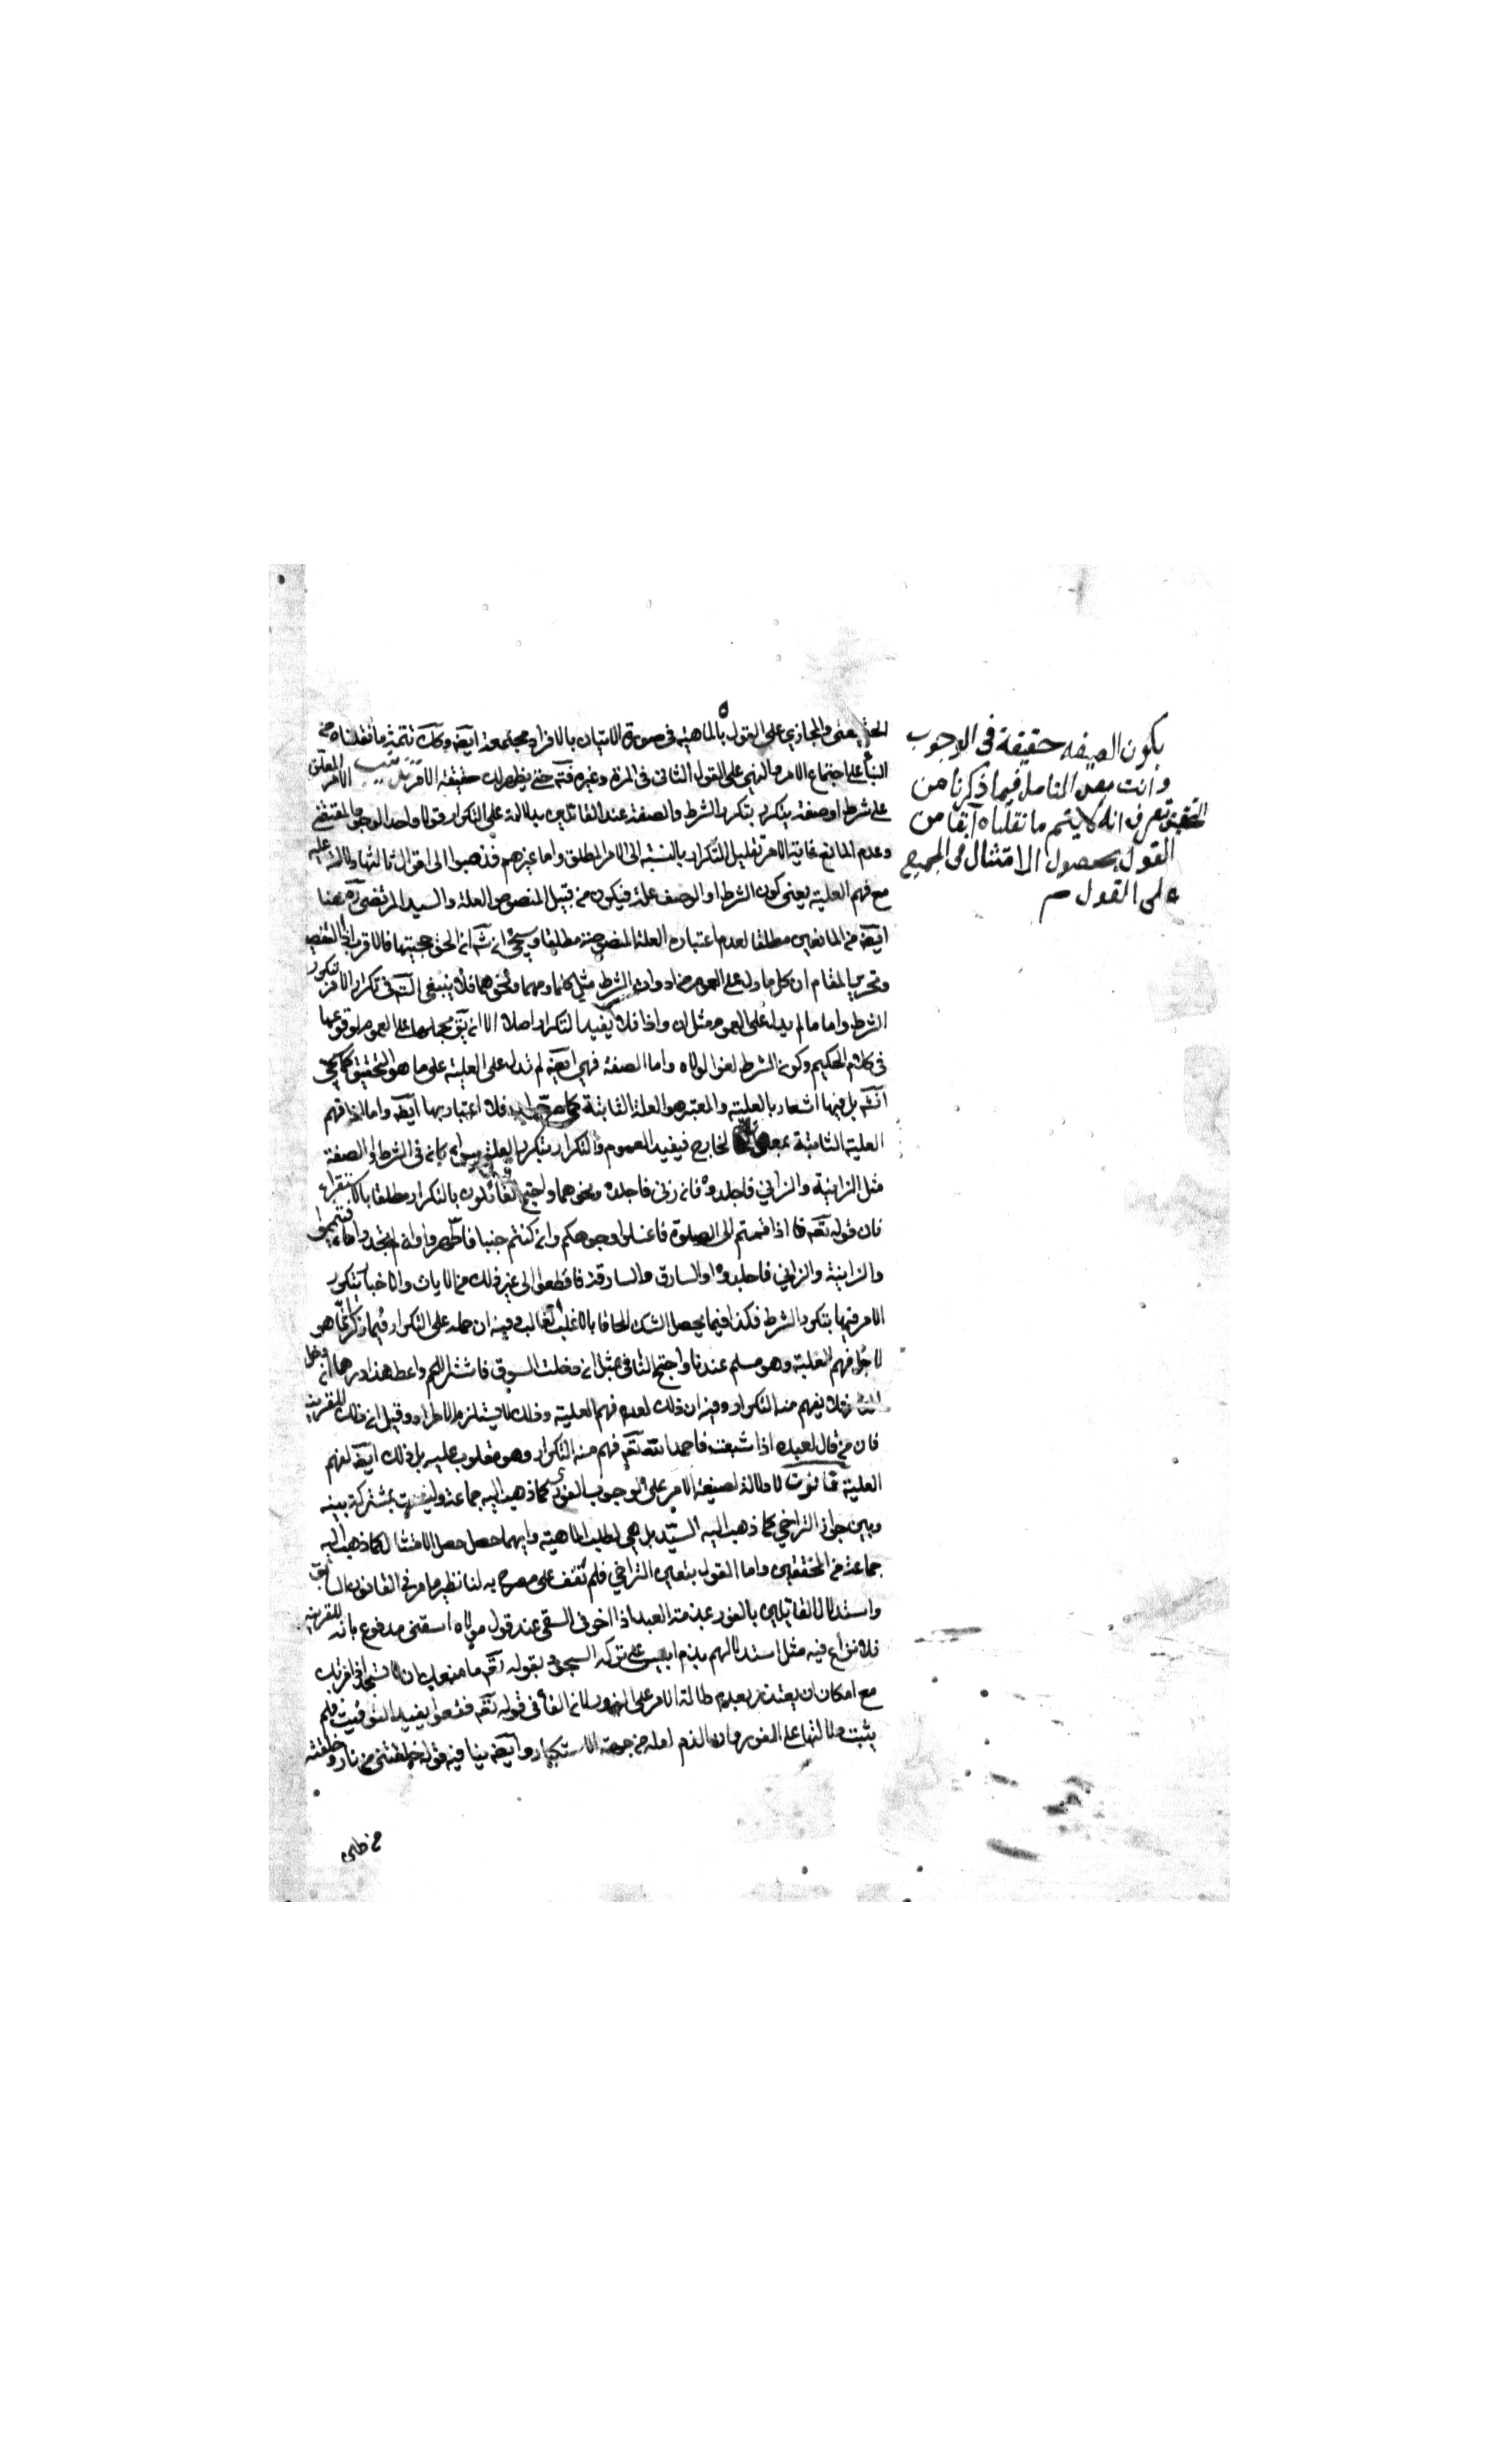 الحقيقي والمجازي على القول بالماهية في صورة الاتيان بالافراد مجتمعة ايضا وكك تتمة ما نقلناه من
البناء على اجتماع الامر والنهي على القول الثاني في المرة وغيره فتم حتى يظهر لك حقيقة الامر تذنيب الامر المعلق
على شرط او صفة يتكرر بتكرر الشرط والصفة عند القائلين بدلالته على التكرار قولا واحدا لوجود المقتضي
وعدم المانع غاية الامر تقليل التكرار بالنسبة الى الامر المطلق واما غيرهم فذهبوا الى اقوال ثالثها دلالته عليه
مع فهم العلية يعني كون الشرط او الوصف علة فيكون من قبيل المنصوص العلة والسيد المرتضى ره هنا
ايضا من المانعين مطلقا لعدم اعتباره العلة المنصوصة مطلقا وسيجئ انش ان الحق حجيتها فالاقرب اذا التفصيل
وتحرير المقام ان كل ما دل على العموم من ادوات الشرط مثل كلما ومهما ونحوهما فلا ينبغي التامل في تكرار الامر بتكرر
الشرط واما ما لم يدل على العموم مثل ان واذا فلا يفيد التكرار اصلا الا ان يق بحملها على العموم لوقوعها
في كلام الحكيم وكون الشرط لغوا لولاه واما الصفة فهي ايضا لم تدل على العلية على ما هو التحقيق كما سيجئ
انش بل فيها اشعار بالعلية والمعتبر هو العلة الثابتة فلا اعتبار بها ايضا واما اذا فهم
العلية الثابتة الخارج فيفيد العموم والتكرار بتكرر العلة سواء كان في الشرط او الصفة
مثل الزانية والزاني فاجلدوا فان زنى فاجلده ونحوهما واحتج القائلون بالتكرار مطلقا بالاستقراء
فان قوله تعه فاذا قمتم الى الصلوة فاغسلوا وجوهكم وان كنتم جنبا فاطهروا وان لم تجدوا ماء فتيمموا
والزانية والزاني فاجلدوا والسارق والسارقة فاقطعوا الى غير ذلك من الايات والاخبار يتكرر
الامر فيها بتكرر الشرط فكذا فيما يحصل الشك الحاقا بالاغلب الغالب وفيه ان حمله على التكرار فيما ذكر انما هو
لاجل فهم العلية وهو مسلم عندنا واحتج النافي بمثل ان دخلت السوق فاشتر اللحم واعط هذا درهما ان دخل
فلا يفهم منه التكرار وفيه ان ذلك لعدم فهم العلية وذلك لا يستلزم الاطراد وقيل ان ذلك للقرينة
فان من قال لعبده اذا شبعت فاحمد الله تعه فهم منه التكرار وهو مقلوب عليه بل ذلك ايضا لفهم
العلية قانون لا دلالة لصيغة الامر على الوجوب الفوري كما ذهب اليه جماعة وليست مشتركة بينه
وبين جواز التراخي كما ذهب اليه السيد بل هي لطلب الماهية وايهما حصل حصل الامتثال كما ذهب اليه
جماعة من المحققين واما القول بتعين التراخي فلم نقف على مصرح به لنا نظير ما مر في القانون السابق
واستدلال القائلين بالفور بمذمة العبد اذا اخر في السقي عند قول مولاه اسقني مدفوع بانه للقرينة
فلا نزاع فيه مثل استدلالهم بذم ابليس على تركه السجود بقوله تعه ما منعك ان لا تسجد اذ امرتك
مع امكان ان يعتذر بعدم دلالة الامر على الفور لان الفاء في قوله تعه فقعوا يفيد التوقيت فلم
يثبت دلالتها على الفور وان الذم لعله من جهة الاستكبار وايضا ينافيه قوله خلقتني من نار وخلقته
من طين
يكون الصيغه حقيقة في الوجوب
وانت بعد التامل فيما ذكرنا من
التحقيق تعرف انه لا يتم ما نقلناه آنفا من
القول بحصول الامتثال في الجميع
على القول صح